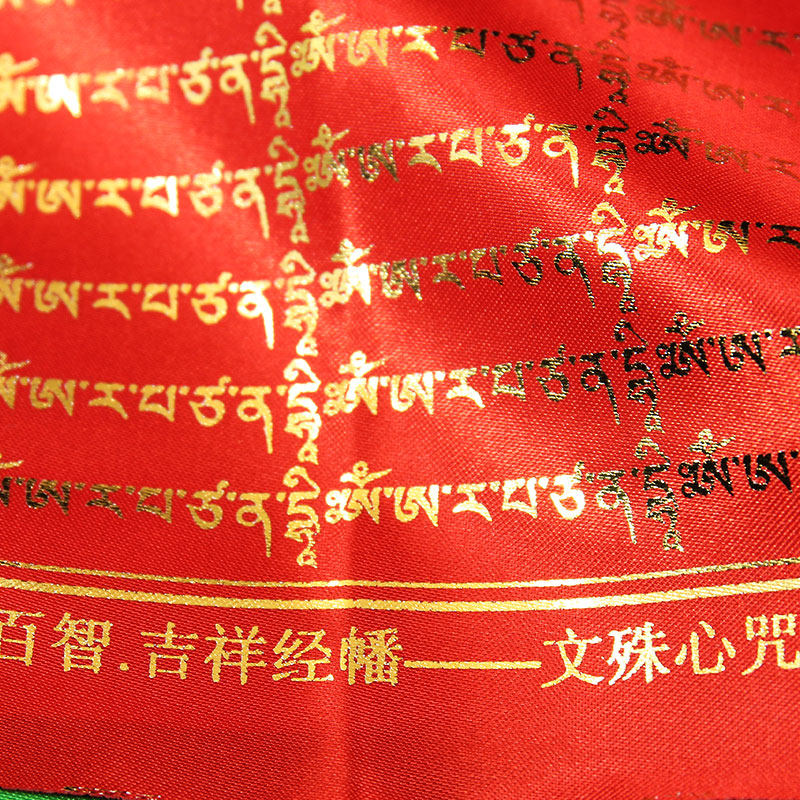 ཨོཾ་ཨ་ར་པ་ཙ་ན་དྷཱིཿ ཨོཾ་ཨ་ར་པ་ཙ་ན་དྷཱིཿ ཨོཾ་ཨ་ར
ཨོཾ་ཨ་ར་པ་ཙ་ན་དྷཱིཿ ཨོཾ་ཨ་ར་པ་ཙ་ན་དྷཱིཿ ཨོཾ་ཨ་ར
ཨོཾ་ཨ་ར་པ་ཙ་ན་དྷཱིཿ ཨོཾ་ཨ་ར་པ་ཙ་ན་དྷཱིཿ ཨོཾ་ཨ་ར
ཨོཾ་ཨ་ར་པ་ཙ་ན་དྷཱིཿ ཨོཾ་ཨ་ར་པ་ཙ་ན་དྷཱིཿ ཨོཾ་ཨ་ར
ཨོཾ་ཨ་ར་པ་ཙ་ན་དྷཱིཿ ཨོཾ་ཨ་ར་པ་ཙ་ན་དྷཱིཿ ཨོཾ་ཨ
百智.吉祥经幡——文殊心咒